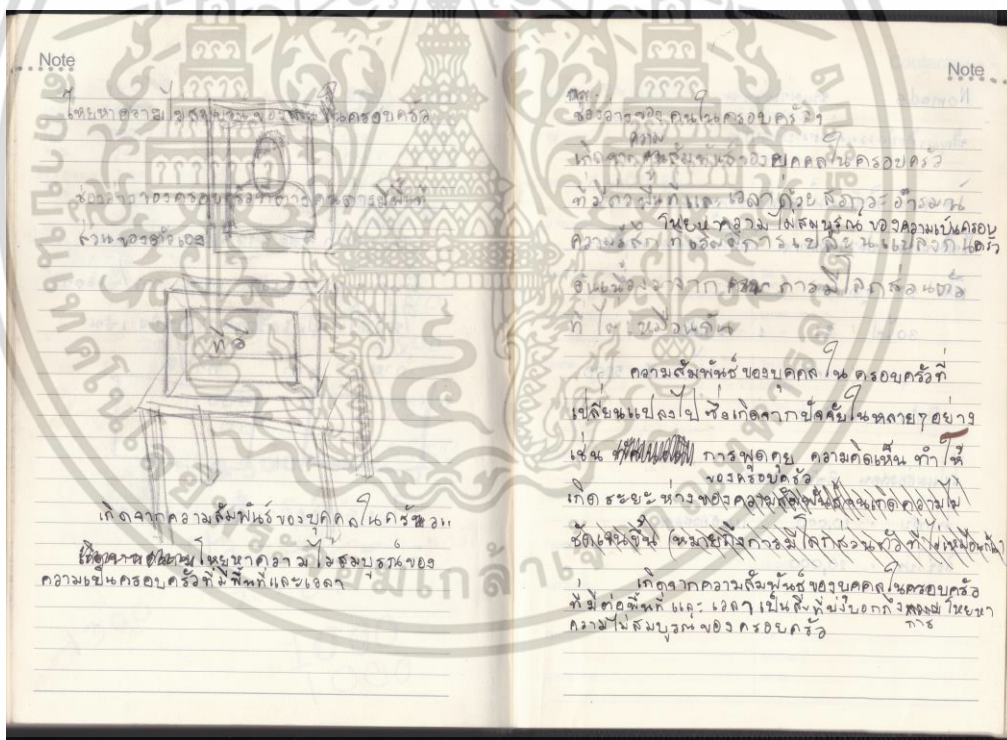 Note
โหยหาความไม่สมบูรณ์ของ ในครอบครัว
ช่องว่างของครอบครัวที่ต่างคนต่างมีพื้นที่
ส่วนของตัวเอง
ท่อ
เกิดจากความสัมพันธ์ของบุคคลในครัว
โหยหาความไม่สมบูรณ์ของ
ความเป็นครอบครัวที่มีพื้นที่และเวลา
Note
ช่องว่างของคนในครอบครัว
ความ
เกิดจาก สัมพันธ์ของบุคคลในครอบครัว
ที่มีต่อพื้นที่และเวลาด้วยสภาวะอารมณ์
โหยหาความไม่สมบูรณ์ของความเป็นครอบ
ครัว
ความรู้สึกที่เริ่มมีการเปลี่ยนแปลงกัน
อันเนื่องมาจาก การมีโลกส่วนตัว
ที่ไม่เหมือนกัน
ความสัมพันธ์ของบุคคลในครอบครัวที่
เปลี่ยนแปลงไปซึ่งเกิดจากปัจจัยในหลายๆอย่าง
เช่น การพูดคุย ความคิดเห็น ทำให้
ของครอบครัว
เกิดระยะห่างของความสัมพันธ์จนเกิดความไม่
ชัดเจนขึ้น (หมายถึงการมีโลกส่วนตัวที่ไม่เหมือนกัน)
เกิดจากความสัมพันธ์ของบุคคลในครอบครัว
ที่มีต่อพื้นที่และเวลาเป็นสิ่งที่บ่งบอกถึง โหยหา
การ
ความไม่สมบูรณ์ของครอบครัว